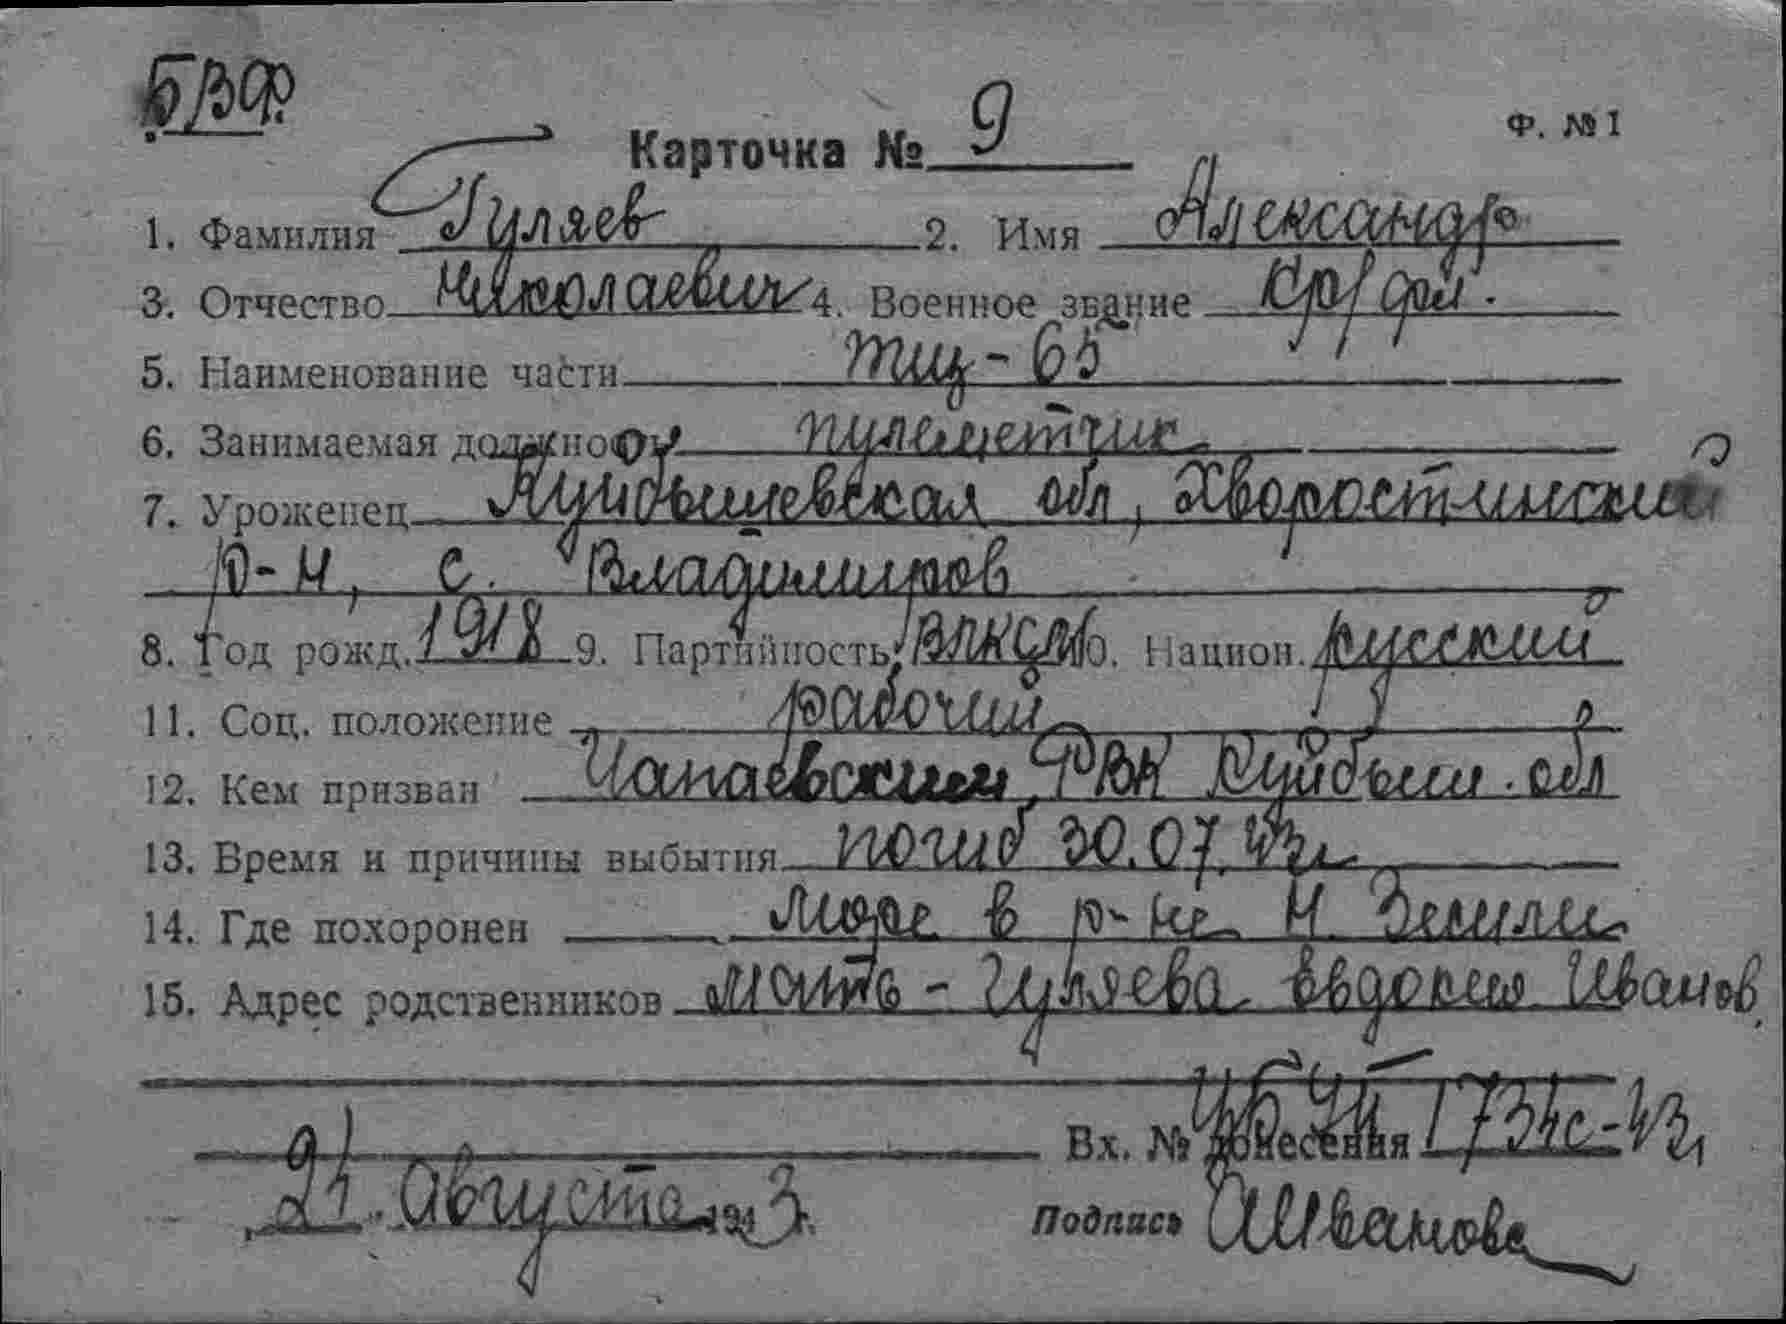 БВФ.
Карточка № 9
Ф. № 1
1. Фамилия Гуляев 2. Имя Александр
3. Отчество Николаевич 4. Военное звание кр/фл.
5. Наименование части тщ-65
6. Занимаемая должность пулеметчик
7. Уроженец Куйбышевская обл, Хворостинский
р-н, с. Владимиров
8. Год рожд. 1918 9. Партийность ВЛКСМ 10. Национ. русский
11. Соц. положение рабочий
12. Кем призван Чапаевским РВК Куйбыш. обл
13. Время и причины выбытия погиб 30.07.43г
14. Где похоронен море в р-не Н. Земли
15. Адрес родственников мать - Гуляева Евдокия Иванов.
Вх. № донесения 1734с-43г
21 августа 1943г.
Подпись АИванова